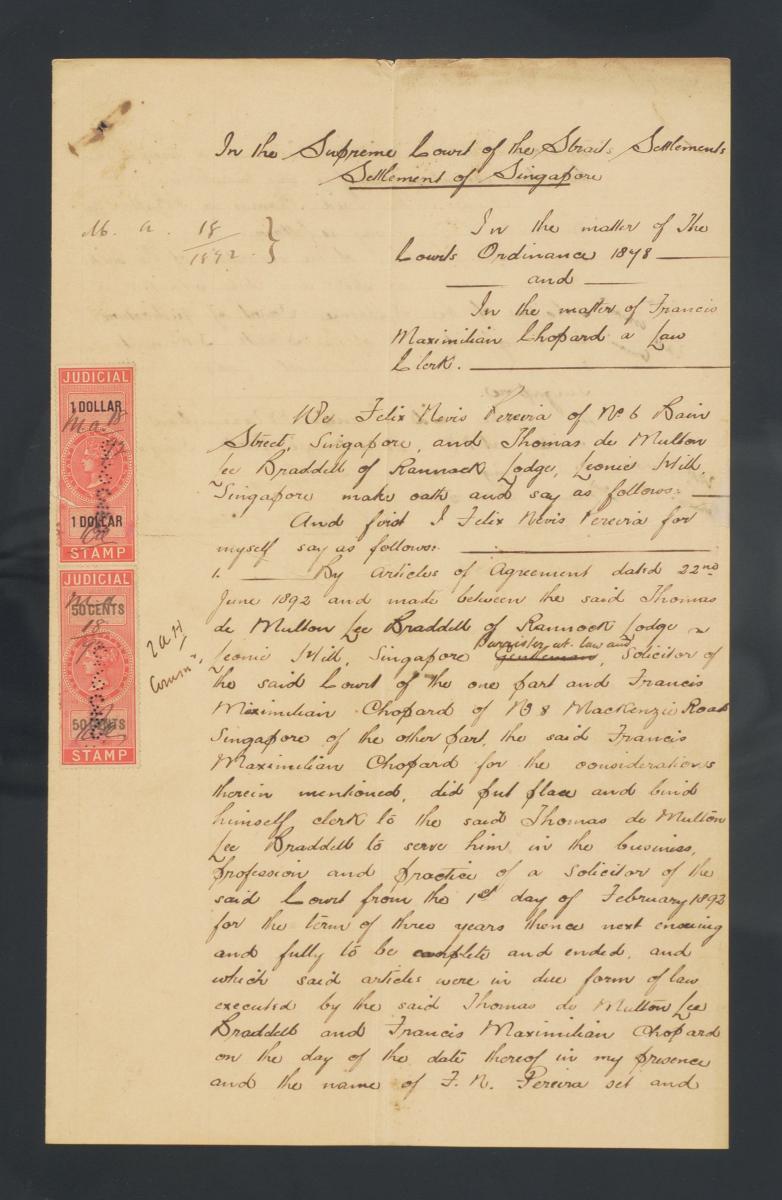 In the Supreme Court of the Straits Settlements
Settlement of Singapore
M. A. 18
1892
In the matter of The
Courts Ordinance 1878
and
In the matter of Francis
Maximilian Chopard a Law
Clerk.
We Felix Nevis Pereira of No 6 Bain
Street, Singapore, and Thomas de Multon
Lee Braddell of Rannock Lodge, Leonie Hill,
Singapore make oath and say as follows:
And first I Felix Nevis Pereira for
myself say as follows:
1. By Articles of Agreement dated 22nd
June 1892 and made between the said Thomas
de Multon Lee Braddell of Rannock Lodge
Barrister-at-law and
Leonie Hill, Singapore Gentleman, Solicitor of
the said Court of the one part and Francis
Miximilian Chopard of No 8 MacKenzie Road
Singapore of the other part, the said Francis
Maximilian Chopard for the considerations
therein mentioned, did put place and bind
himself clerk to the said Thomas de Multon
Lee Braddell to serve him in the business,
profession and practice of a solicitor of the
said Court from the 1st day of February 1892
for the term of three years thence next ensuing
and fully to be complete and ended, and
which said articles were in due form of law
executed by the said Thomas de Multon Lee
Braddell and Francis Maximilian Chopard
on the day of the date thereof in my presence
and the name of F. N. Pereira set and
JUDICIAL
1 DOLLAR
M.a. 18
92
1 DOLLAR
STAMP
JUDICIAL
M.a.
50 CENTS
18
92
50 CENTS
STAMP